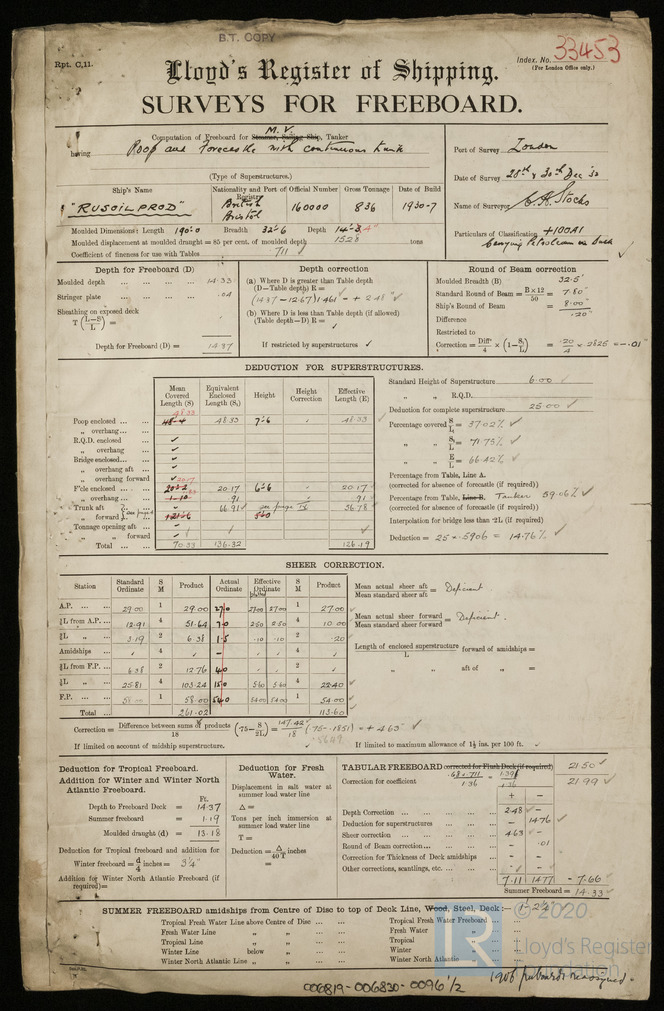 B.T. COPY
Rpt. C.11.
Index. No. 33453
(For London Office only.)
Lloyd's Register of Shipping.
SURVEYS FOR FREEBOARD.
M.V.
Computation of Freeboard for Steamer, Sailing Ship, Tanker
having Poop and Forecastle with continuous trunk
(Type of Superstructures.)
Port of Survey London
Date of Survey 28th & 30th Dec '30
Name of Surveyor C.H. Stocks
Particulars of Classification +100A1
Carrying Petroleum in Bulk
Ship's Name
"RUSOILPROD"
Nationality and Port of Registry
British
Bristol
Official Number
160000
Gross Tonnage
836
Date of Build
1930-7
Moulded Dimensions: Length 190'.0 Breadth 32'.6 Depth 14'.
Moulded displacement at moulded draught = 85 per cent. of moulded depth 1528 tons
Coefficient of fineness for use with Tables .711
Depth for Freeboard (D)
Moulded depth ... 14.33
Stringer plate ... .04
Sheathing on exposed deck
T (L-S / L) =
Depth for Freeboard (D) = 14.37
Depth correction
(a) Where D is greater than Table depth
(D—Table depth) R =
(14.37 - 12.67) 1.461 = + 2.48"
(b) Where D is less than Table depth (if allowed)
(Table depth—D) R =
If restricted by superstructures
Round of Beam correction
Moulded Breadth (B) 32.5'
Standard Round of Beam = B × 12 / 50 = 7.80"
Ship's Round of Beam = 8.00"
Difference .20"
Restricted to
Correction = Diff. / 4 × (1 - S₁/L) = .20 / 4 × .2825 = -.01"
DEDUCTION FOR SUPERSTRUCTURES.
Mean Covered Length (S)
Equivalent Enclosed Length (S₁)
Height
Height Correction
Effective Length (E)
Poop enclosed ... 48.33 48.33 7'.6 48.33
„ overhang ...
R.Q.D. enclosed
„ overhang
Bridge enclosed...
„ overhang aft
„ overhang forward
F'cle enclosed ... 20.17 20.17 6'.6 20.17
„ overhang ... 1-10 .91 .91
Trunk aft 66.91 see page IV 56.78
„ forward 121'.6 5'.0
Tonnage opening aft
„ „ forward
Total ... 70.33 136.32 126.19
Standard Height of Superstructure 6.00
„ „ R.Q.D.
Deduction for complete superstructure 25.00
Percentage covered S/L = 37.02%
„ „ S₁/L = 71.75%
„ „ E/L = 66.42%
Percentage from Table, Line A.
(corrected for absence of forecastle (if required))
Percentage from Table, Line B. Tanker 59.06%
(corrected for absence of forecastle (if required))
Interpolation for bridge less than ·2L (if required)
Deduction = 25 × .5906 = 14.76%
SHEER CORRECTION.
Station
Standard Ordinate
S M
Product
Actual Ordinate
Effective Ordinate
S M
Product
A.P. ... 29.00 1 29.00 27.0 27.00 27.00 1 27.00
⅙L from A.P. ... 12.91 4 51.64 7.0 2.50 2.50 4 10.00
⅓L „ 3.19 2 6.38 1.5 .10 .10 2 .20
Amidships ... 4 4
⅓L from F.P. ... 6.38 2 12.76 4.0 2
⅙L „ 25.81 4 103.24 15.0 5.60 5.60 4 22.40
F.P. ... 58.00 1 58.00 54.0 54.00 54.00 1 54.00
Total ... 261.02 113.60
Mean actual sheer aft / Mean standard sheer aft = Deficient.
Mean actual sheer forward / Mean standard sheer forward = Deficient.
Length of enclosed superstructure / L forward of amidships =
„ „ aft of „ =
Correction = Difference between sums of products / 18 (·75 - S / 2L) = 147.42 / 18 (.75 - .1851) = + 4.63"
.5649
If limited on account of midship superstructure.
If limited to maximum allowance of 1½ ins. per 100 ft.
Deduction for Tropical Freeboard.
Addition for Winter and Winter North Atlantic Freeboard.
Ft.
Depth to Freeboard Deck = 14.37
Summer freeboard = 1.19
Moulded draught (d) = 13.18
Deduction for Tropical freeboard and addition for
Winter freeboard = d/4 inches = 3¼"
Addition for Winter North Atlantic Freeboard (if required) =
Deduction for Fresh Water.
Displacement in salt water at summer load water line
Δ =
Tons per inch immersion at summer load water line
T =
Deduction = Δ / 40 T inches
=
TABULAR FREEBOARD corrected for Flush Deck (if required) 21.50
Correction for coefficient .68 + .711 / 1.36 = 1.391 / 1.36 21.99
+ -
Depth Correction ... 2.48 -
Deduction for superstructures ... - 14.76
Sheer correction ... 4.63 -
Round of Beam correction... - .01
Correction for Thickness of Deck amidships - -
Other corrections, scantlings, etc. ... - -
7.11 14.77 - 7.66
Summer Freeboard = 14.33
SUMMER FREEBOARD amidships from Centre of Disc to top of Deck Line, Wood, Steel, Deck:— 1' 2¼"
Tropical Fresh Water Line above Centre of Disc ...
Fresh Water Line „ „
Tropical Line „ „
Winter Line below „
Winter North Atlantic Line „ „
Tropical Fresh Water Freeboard
Fresh Water „
Tropical „
Winter „
Winter North Atlantic „
© 2020
LR
Lloyd's Register
Foundation
1906 freeboards reassigned.
006819-006830-0096 1/2